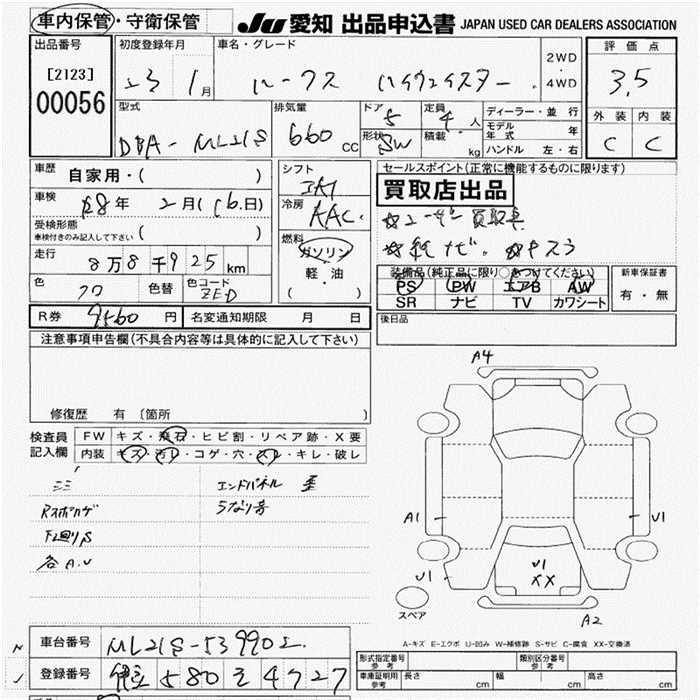 車内保管・守衛保管
JU 愛知 出品申込書 JAPAN USED CAR DEALERS ASSOCIATION
出品番号
[2123]
00056
初度登録年月
23 1月
車名・グレード
ルークス ハイウェイスター
2WD
・
4WD
評価点
3.5
外装 内装
C C
型式
DBA-ML21S
排気量
660 CC
ドア 5
形状 SW
定員 4人
積載 kg
ディーラー・並行
モデル年式 年
ハンドル 左・右
車歴 自家用・( )
車検 R8年 2月(16日)
受検形態
車検付きのみ記入して下さい ( )
走行
8万8千925km
色 クロ 色替
色コード ZED
シフト
IAT
冷房
AAC
燃料
ガソリン
軽・油
( )
セールスポイント(正常に機能するものに限ります)
買取店出品
☆ユーザー買取車
☆純ナビ。☆カメラ
装備品(純正品に限り○をつけてください)
PS PW エアB AW
SR ナビ TV カワシート
新車保証書
有・無
R券 9560円
名変通知期限 月 日
後日品
注意事項申告欄(不具合内容等は具体的に記入して下さい)
修復歴 有 〔箇所 〕
検査員
記入欄
FW キズ・飛石・ヒビ割・リペア跡・X要
内装 キズ・汚レ・コゲ・穴・スレ・キレ・破レ
エンドパネル
うなり音
下廻りS
各A.U
A4
A1
U1
U1
U1
XX
A2
スペア
A-キズ E-エクボ U-凹み W-補修跡 S-サビ C-腐食 XX-交換済
車台番号 ML21S-539902
登録番号 580 そ 4727
形式指定番号
参考
類別区分番号
参考
車庫証明用
参考
長さ cm
幅 cm
高さ cm